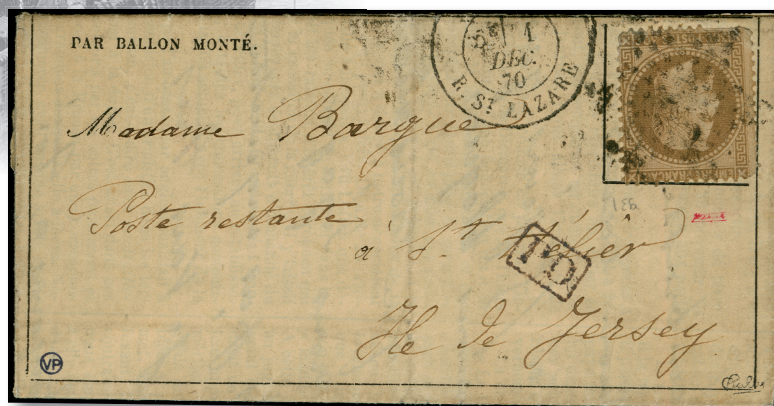 PAR BALLON MONTÉ.
1
DEC.
70
R. ST LAZARE
Madame Bargue
Poste restante
à St Hélier
P.D.
Ile de Jersey
VP